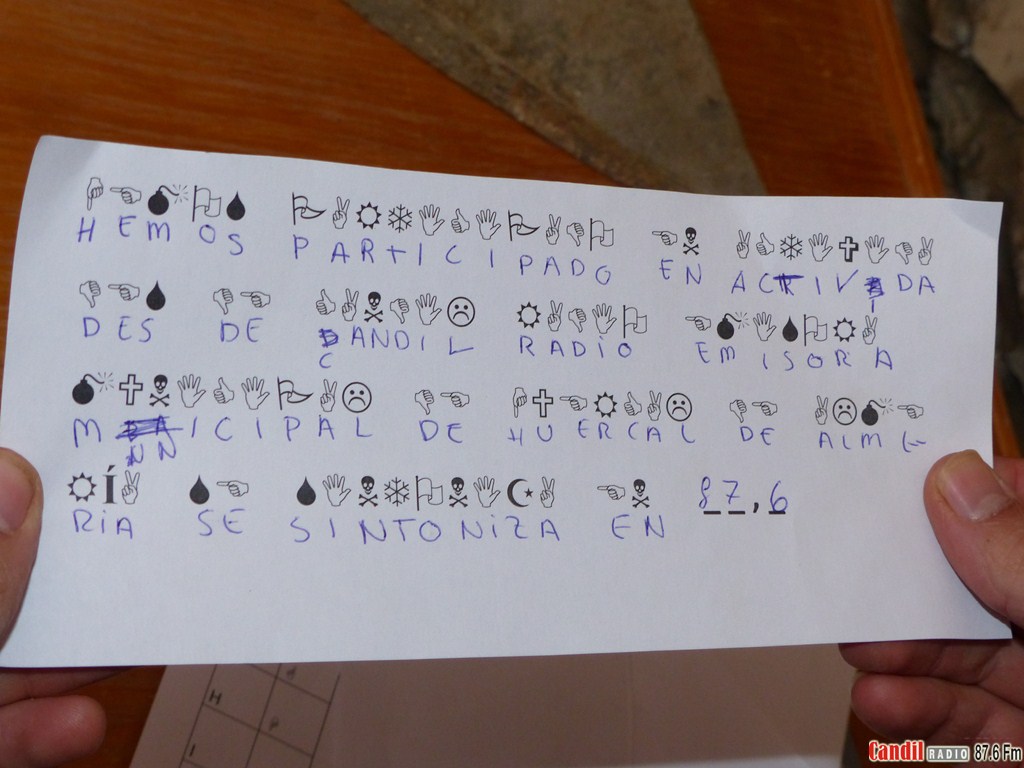 HEMOS PARTICIPADO EN ACTIVIDA
DES DE CANDIL RADIO EMISORA
MNNICIPAL DE HUERCAL DE ALME
RÍA SE SINTONIZA EN 87,6
H
I
Candil RADIO 87.6 Fm